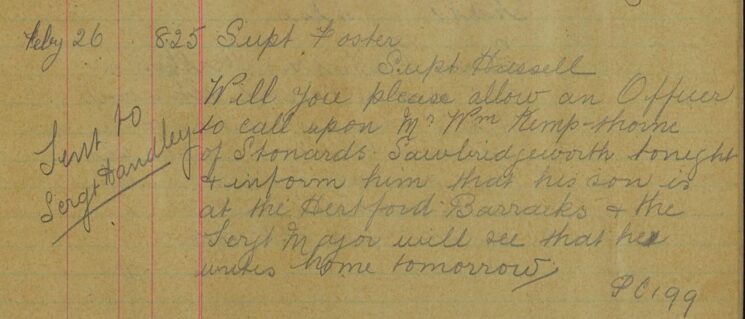 Feby 26 8.25 Supt Foster
Supt Hassell
Will you please allow an Officer
to call upon Mr Wm Kemp-thorne
of Stonards Sawbridgeworth tonight
& inform him that his son is
at the Hertford Barracks & the
Sergt Major will see that he
writes home tomorrow
PC 199
Sent to
Sergt Handley